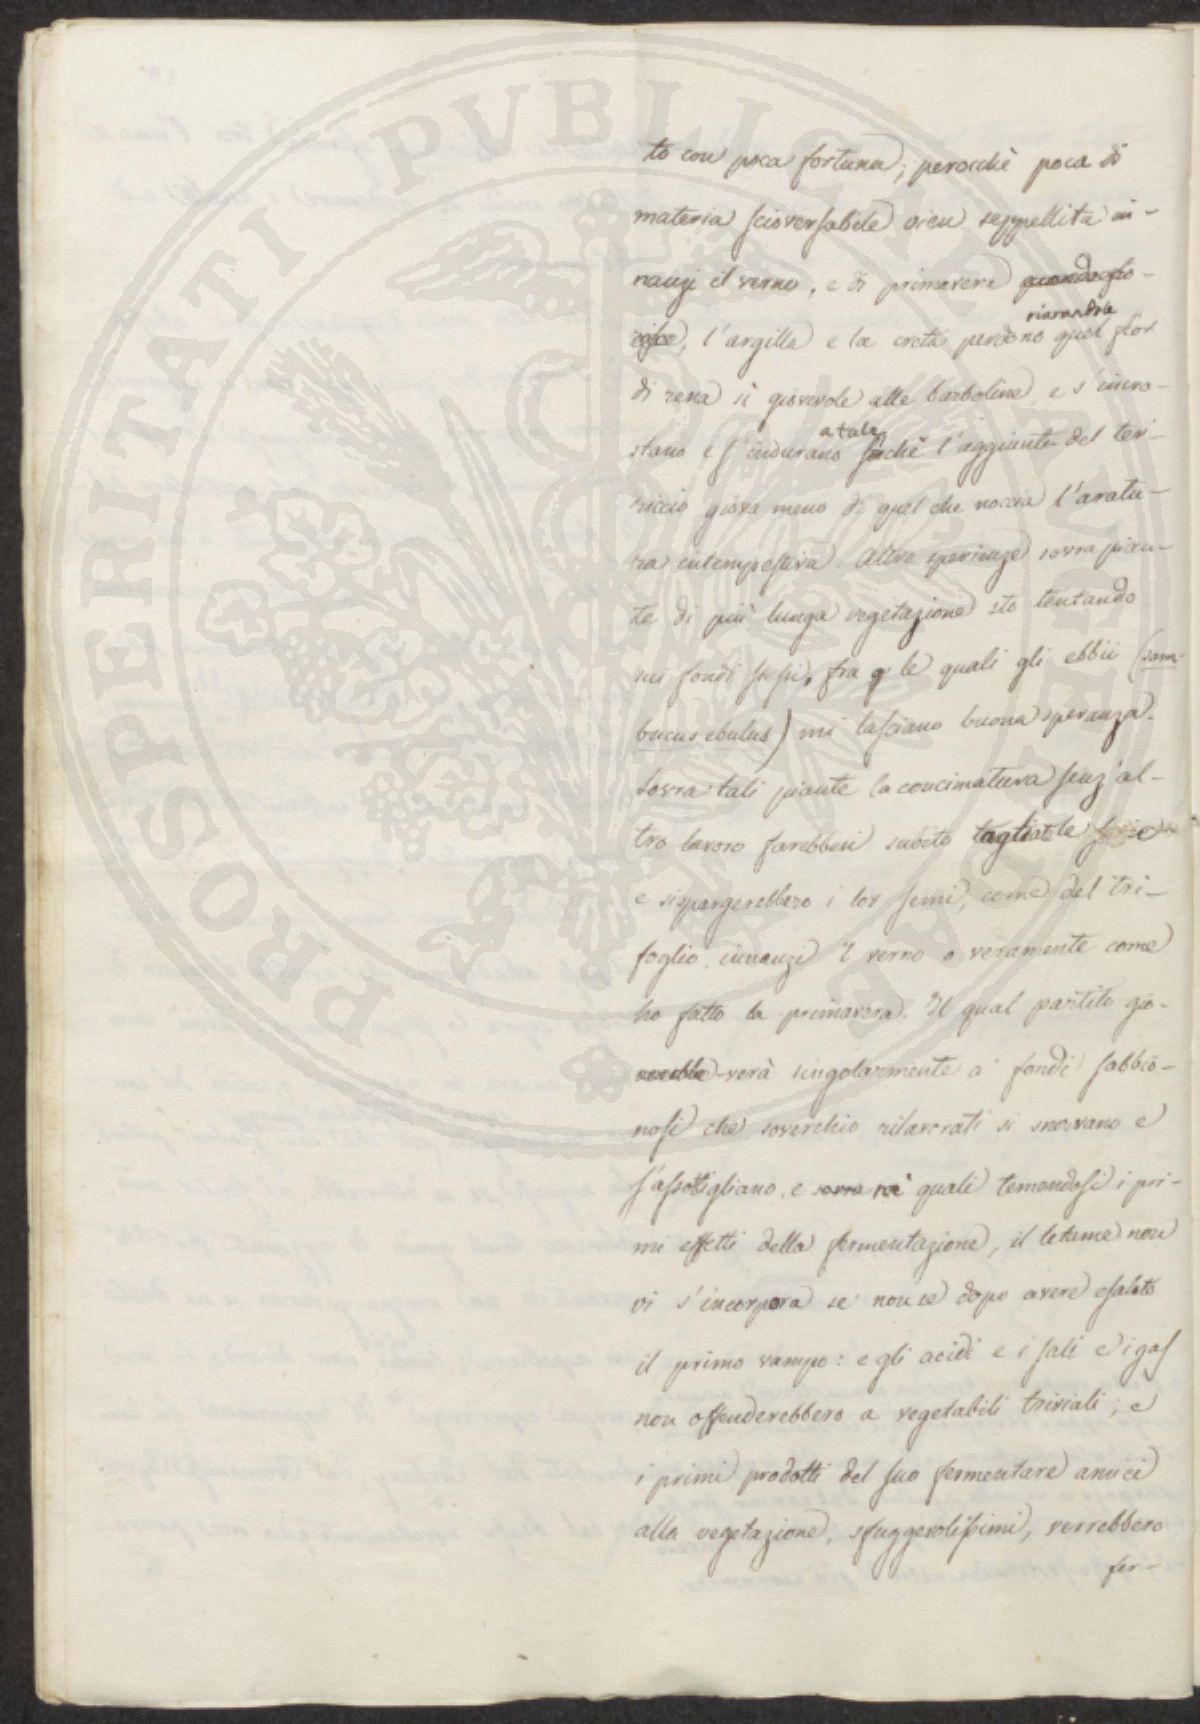 to con poca fortuna; perocchè poca di
materia scioversabile vien seppellita in-
nanzi il verno, e di primavera quando fio-
risce, l'argilla e la creta perdono riarandole quel fior
di rena sì giovevole alle barboline, e s'incro-
stano e s'indurano a tale sicchè l'aggiunta del ter-
riccio giova meno di quel che noccia l'aratu-
ra intempestiva. Altre sperienze sovra pian-
te di più lunga vegetazione sto tentando
nei fondi stessi, fra q le quali gli ebbii (sam-
bucus ebulus) mi lasciano buona speranza.
Sovra tali piante la concimatura senz'al-
tro lavoro farebbesi subito tagliatele
e sispargerebbero i lor semi, come del tri-
foglio, innanzi 'l verno o veramente come
ho fatto la primavera. Il qual partito gio-
verà singolarmente a' fondi sabbio-
nosi che soverchio rilavorati si snervano e
s'assottigliano, e sovra ne' quali temendosi i pri-
mi effetti della fermentazione, il letame non
vi s'incorpora se non se dopo avere esalato
il primo vampo: e gli acidi e i sali e i gas
non offenderebbero a vegetabili triviali; e
i primi prodotti del suo fermentare amici
alla vegetazione, sfuggevolissimi, verrebbero
fer-
PROSPERITATI PUBLICAE AUGENDAE